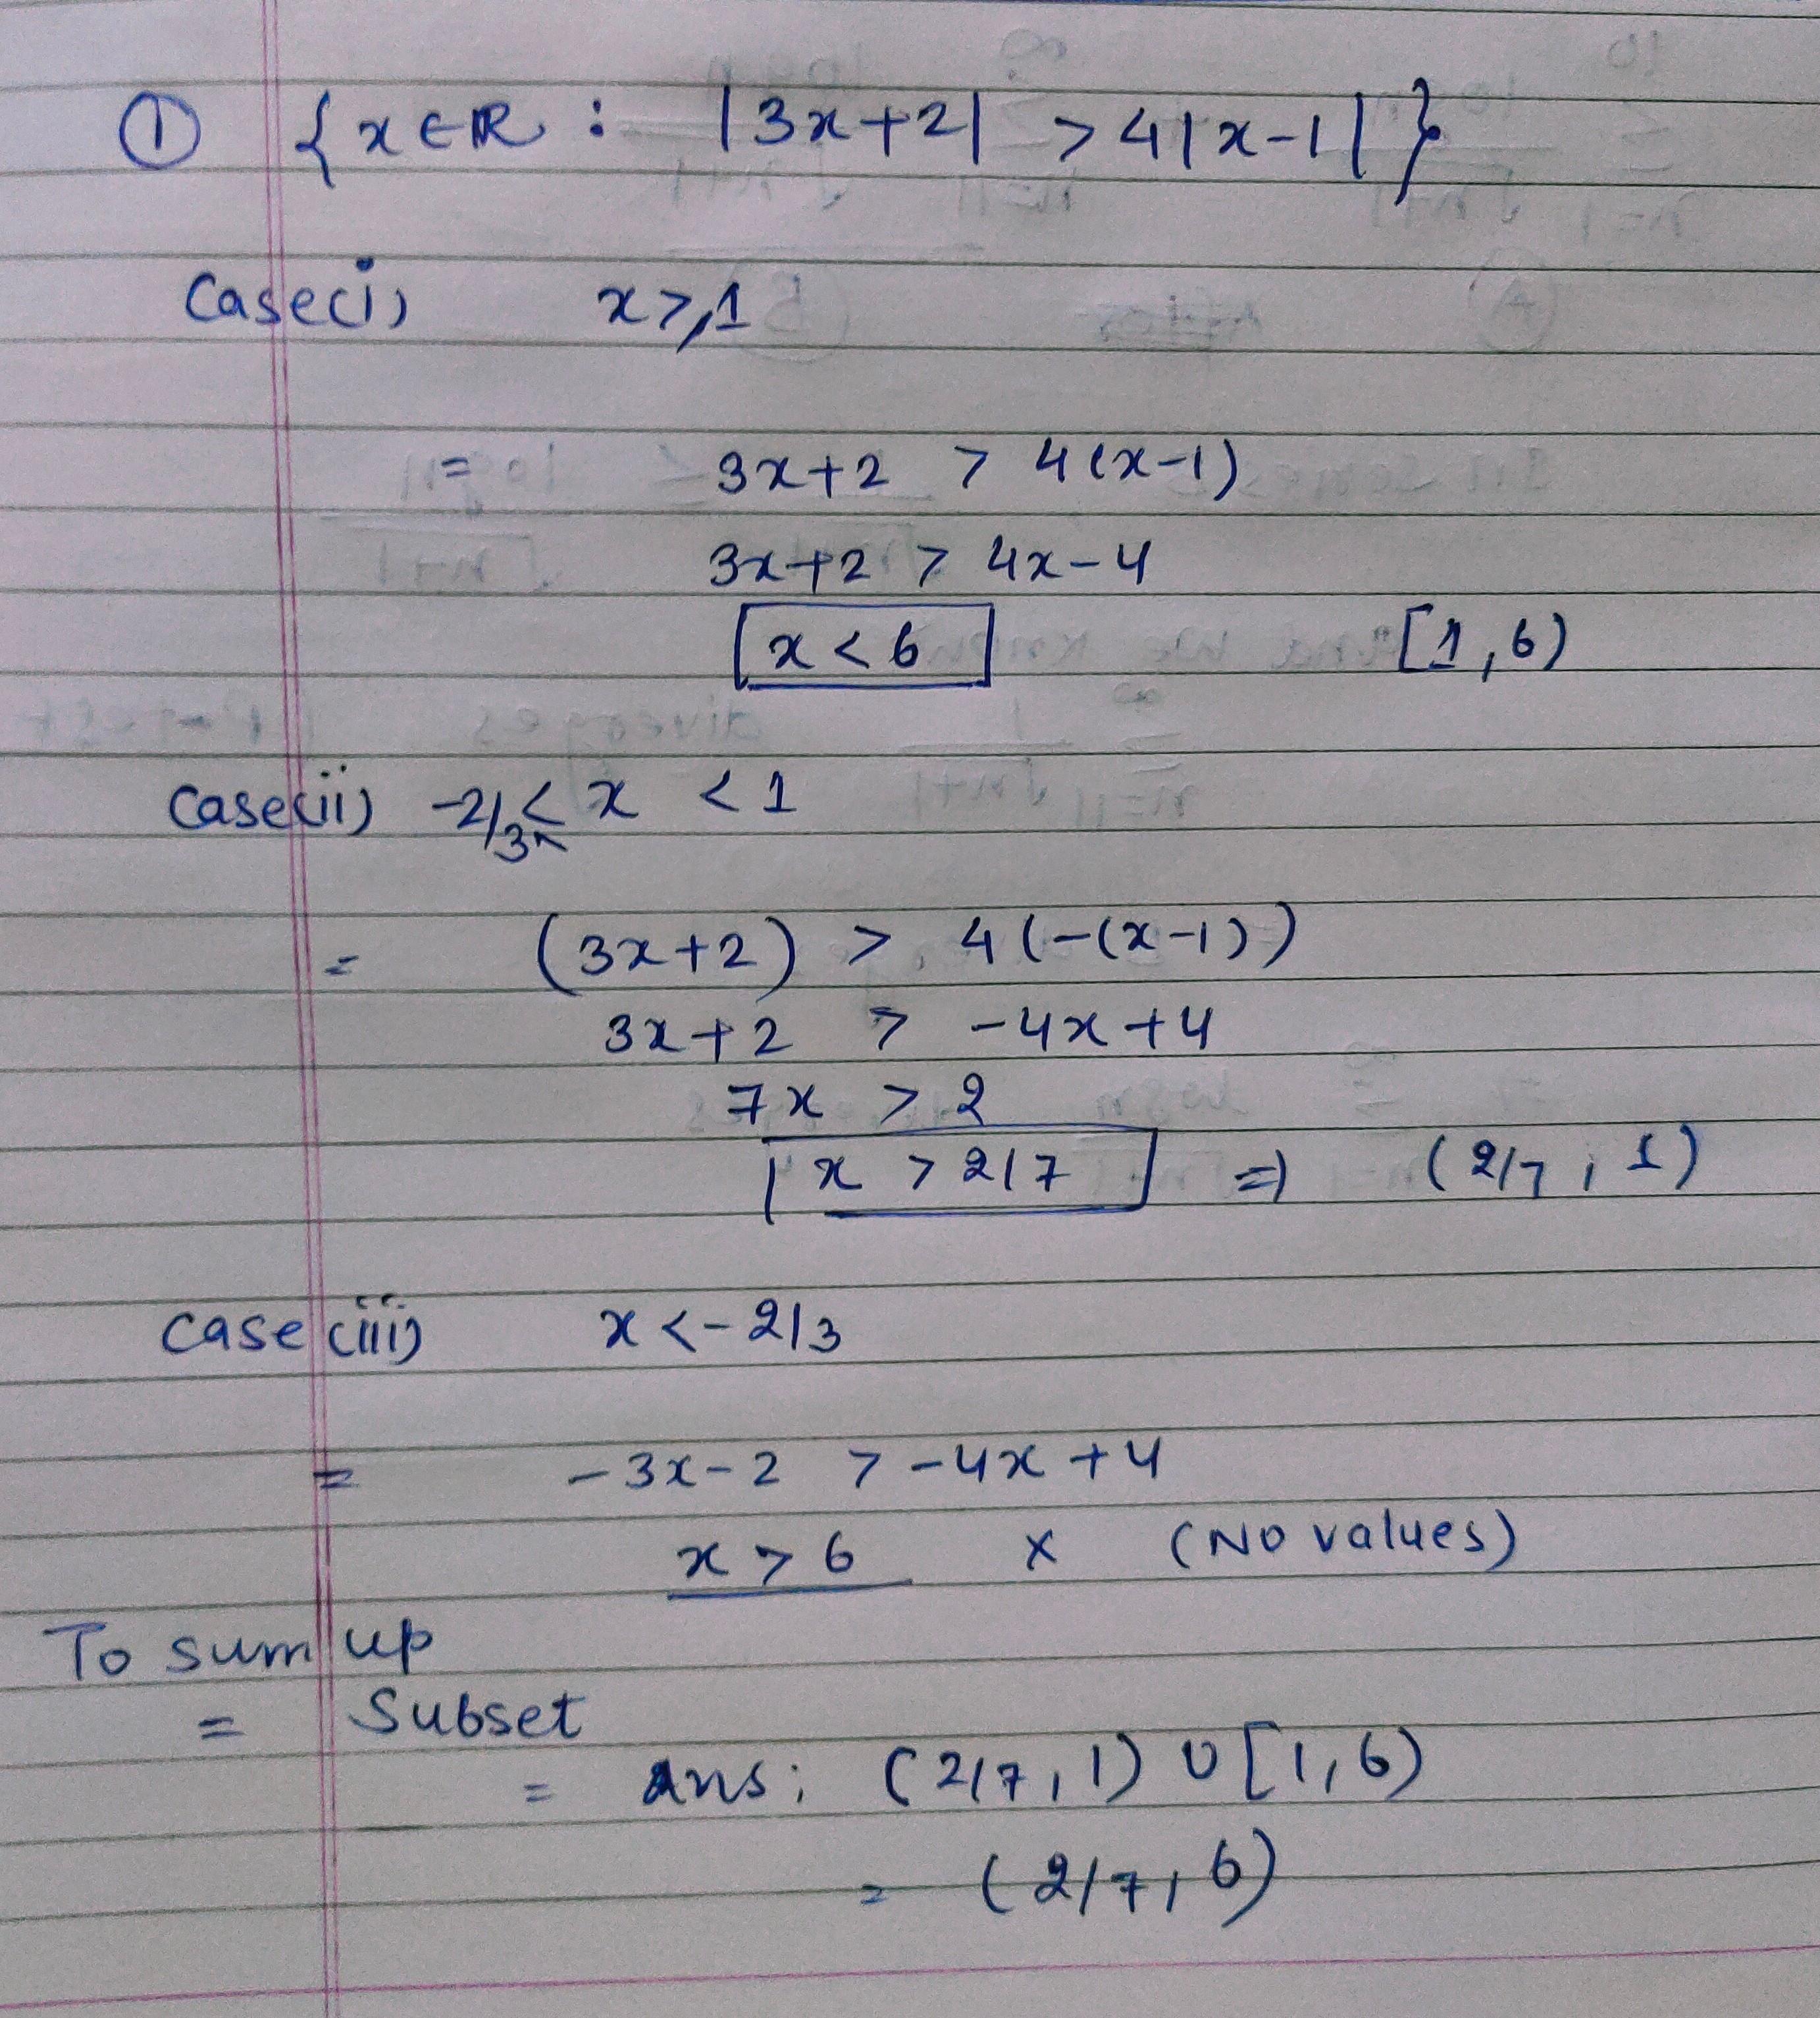 ① {x∈ℝ : |3x+2| > 4|x-1|}
Case(i) x≥1
= 3x+2 > 4(x-1)
3x+2 > 4x-4
x < 6 [1,6)
Case(ii) -2/3 ≤ x < 1
= (3x+2) > 4(-(x-1))
3x+2 > -4x+4
7x > 2
x > 2/7 ⇒ (2/7, 1)
Case(iii) x < -2/3
= -3x-2 > -4x+4
x > 6 × (NO values)
To sum up
= Subset
= Ans: (2/7, 1) ∪ [1,6)
= (2/7, 6)